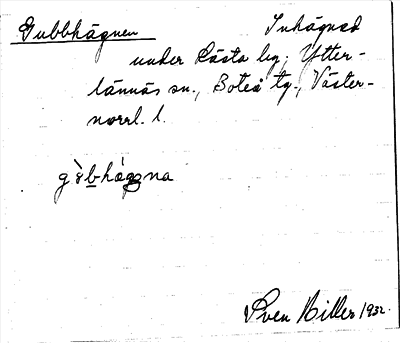 Gubbhägnen Inhägnad
under Rästa by, Ytter-
lännäs sn., Boteå tg., Väster-
norrl. l.
Sven Hiller 1932.